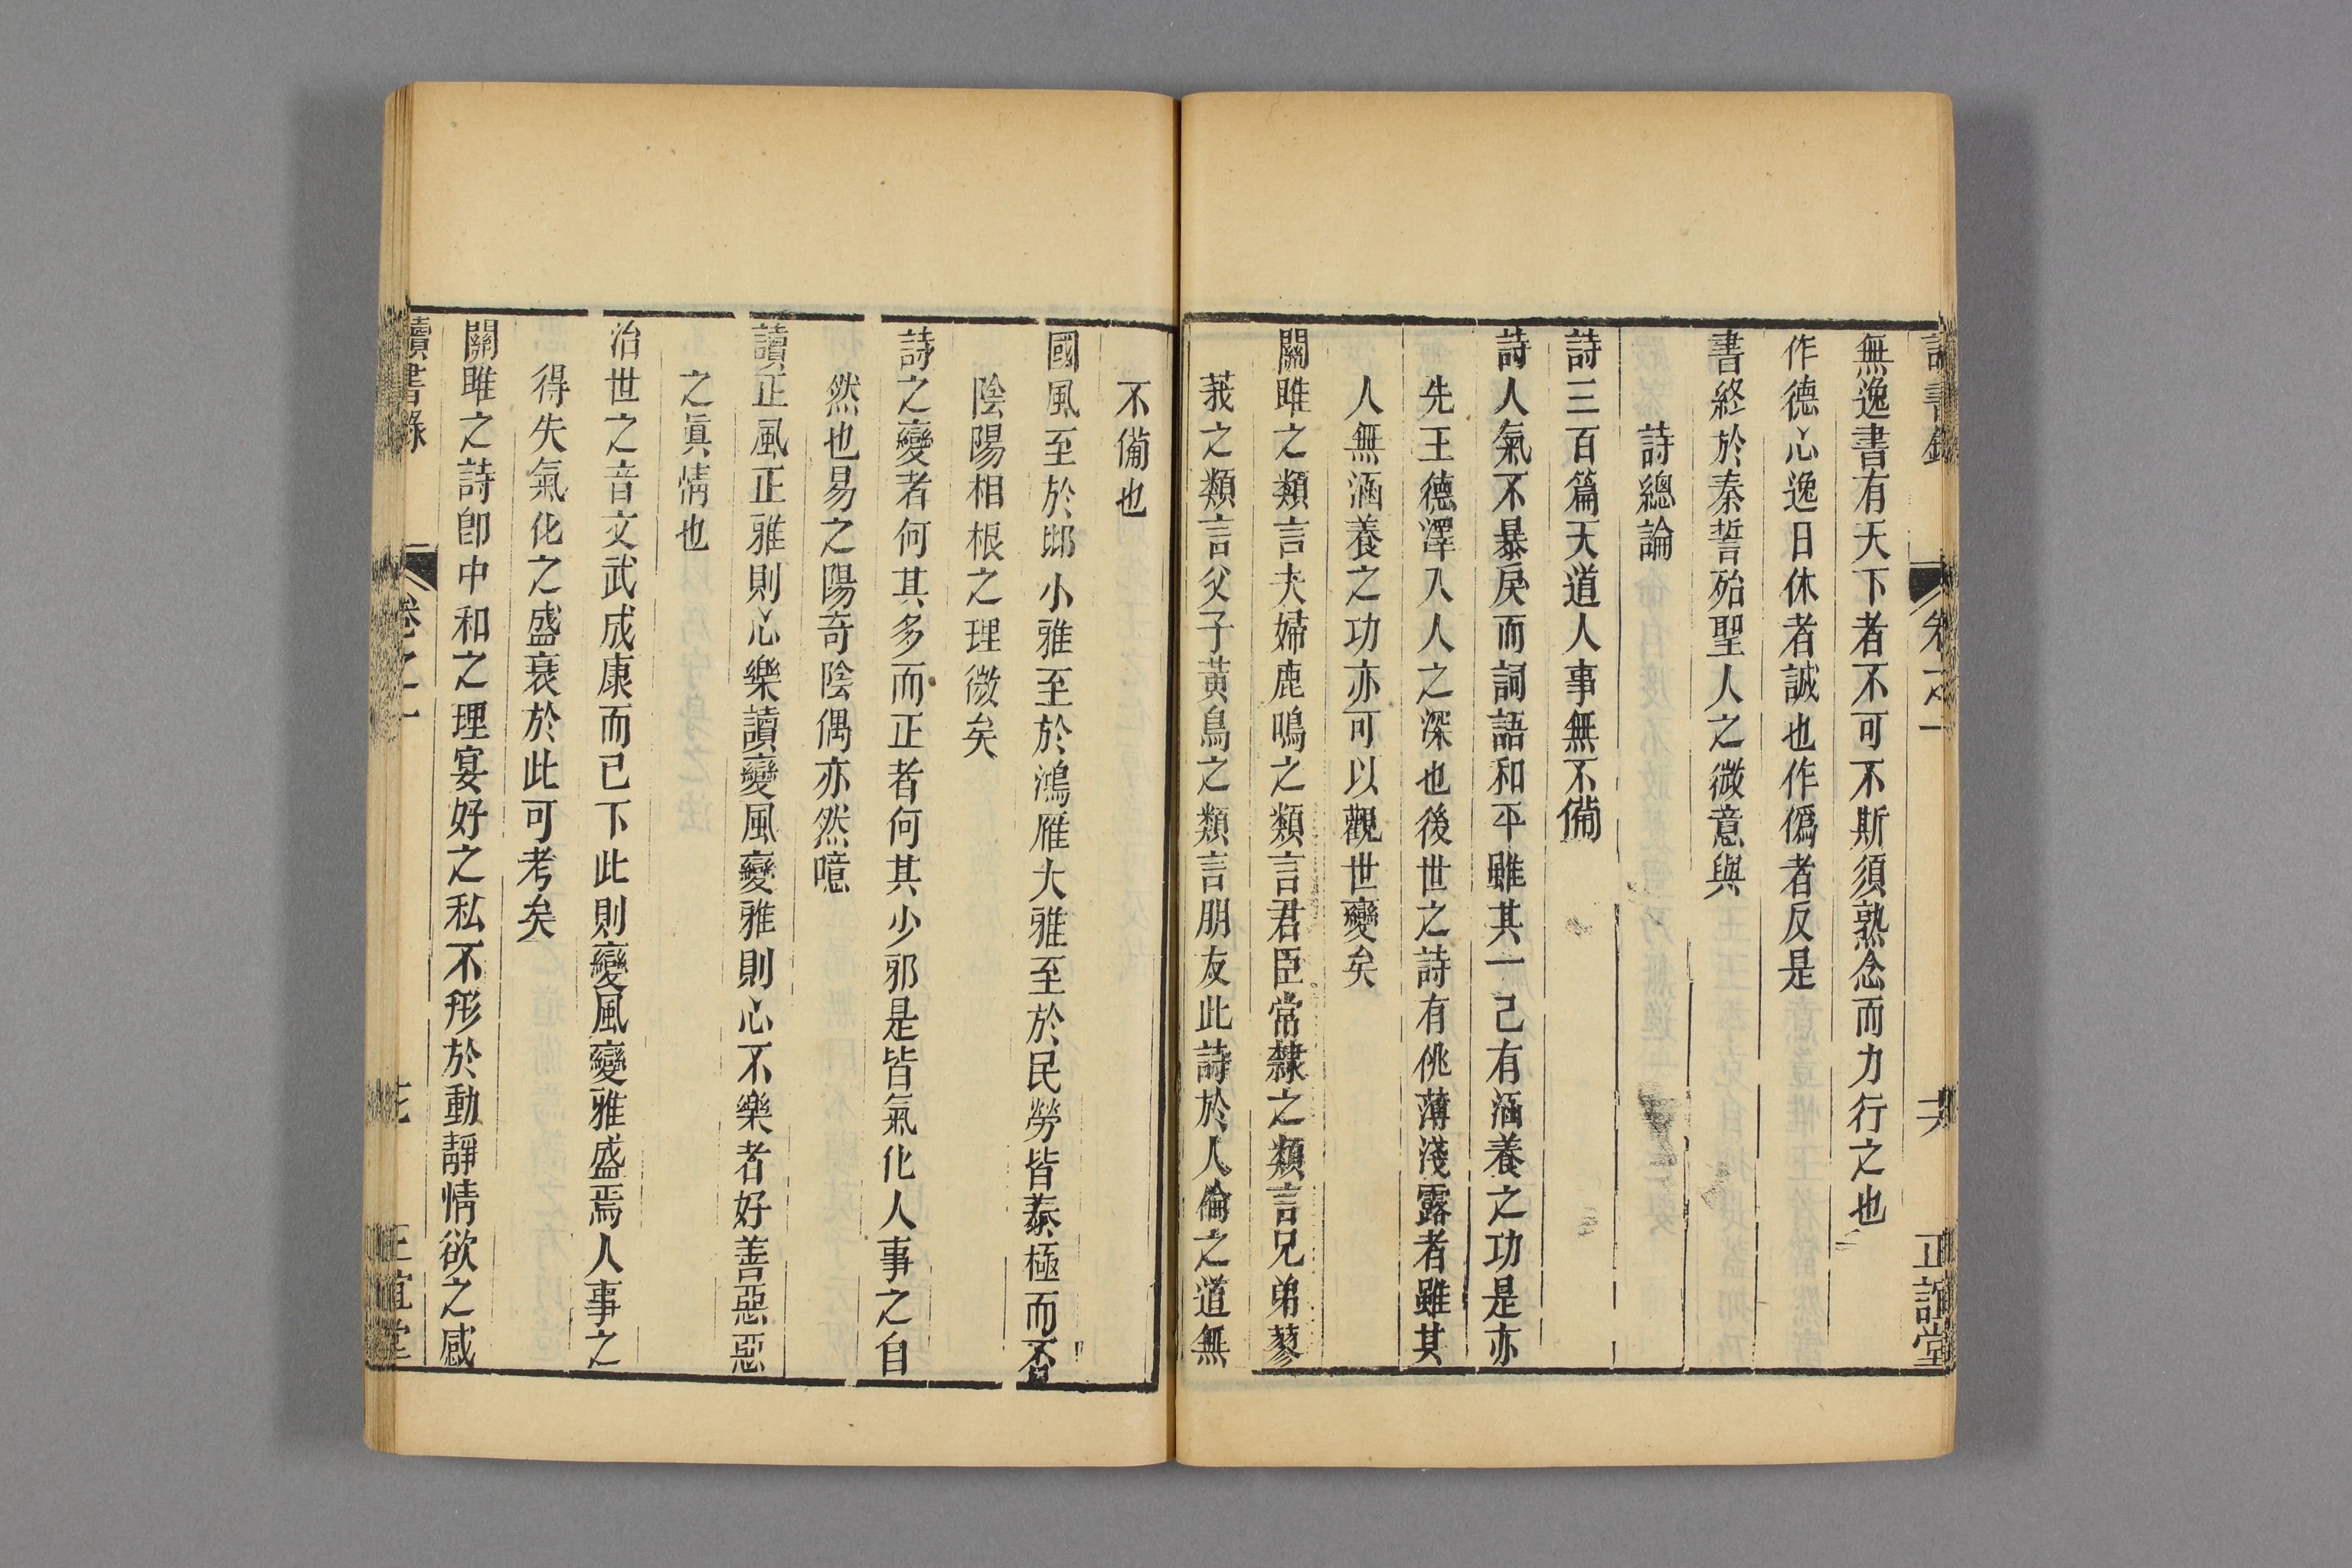 讀書錄 卷之一 正誼堂
無逸書有天下者不可不斯須熟念而力行之也
作德心逸日休者誠也作僞者反是
書終於秦誓殆聖人之微意與
詩總論
詩三百篇天道人事無不備
詩人氣不暴戾而詞語和平雖其一己有涵養之功是亦
先王德澤入人之深也後世之詩有佻薄淺露者雖其
人無涵養之功亦可以觀世變矣
關雎之類言夫婦鹿鳴之類言君臣常隸之類言兄弟蓼
莪之類言父子黃鳥之類言朋友此詩於人倫之道無
不備也
國風至於邶小雅至於鴻雁大雅至於民勞皆泰極而否
陰陽相根之理微矣
詩之變者何其多而正者何其少邪是皆氣化人事之自
然也易之陽奇陰偶亦然噫
讀正風正雅則心樂讀變風變雅則心不樂者好善惡惡
之眞情也
治世之音文武成康而已下此則變風變雅盛焉人事之
得失氣化之盛衰於此可考矣
關雎之詩卽中和之理宴好之私不形於動靜情欲之感
讀書錄 卷之一 正誼堂